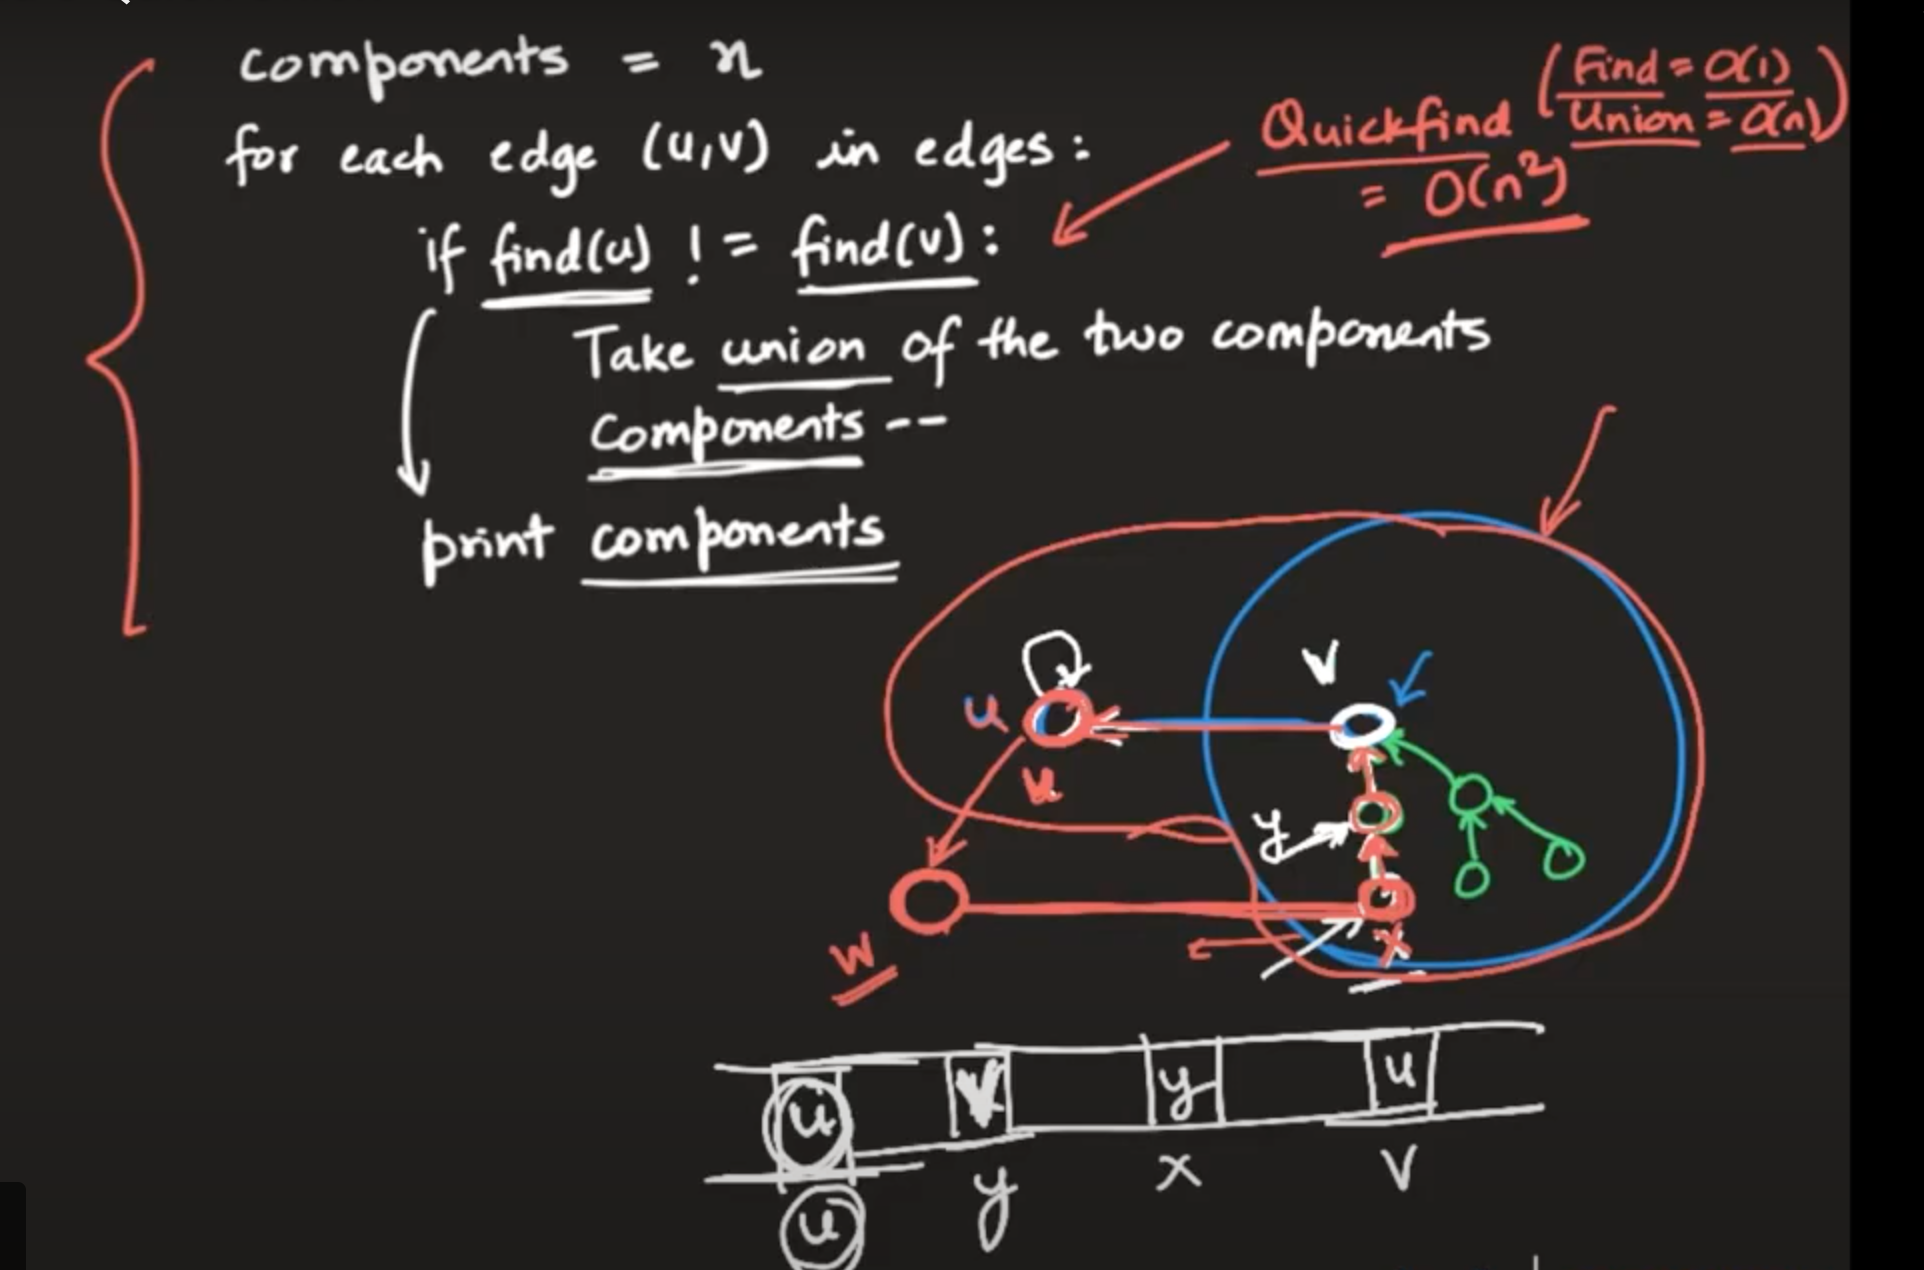 components = n
for each edge (u,v) in edges:
if find(u) != find(v):
Take union of the two components
Components --
print components
Quickfind (Find = O(1)
Union = O(n))
= O(n²)
v
u
u
y
w
x
u v y u
u y x v